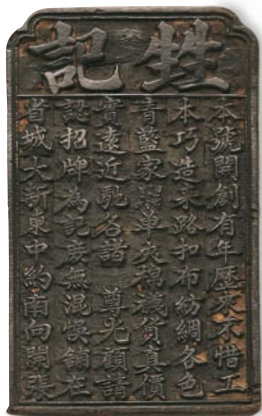 甡記
本號開創有年歷來不惜工
本巧造未路扣布紡綢各色
青藍家單夾棉襪貨真價
實遠近馳名諸 尊光顧請
認招牌為記庶無混悞鋪在
省城大新東中約南向開張